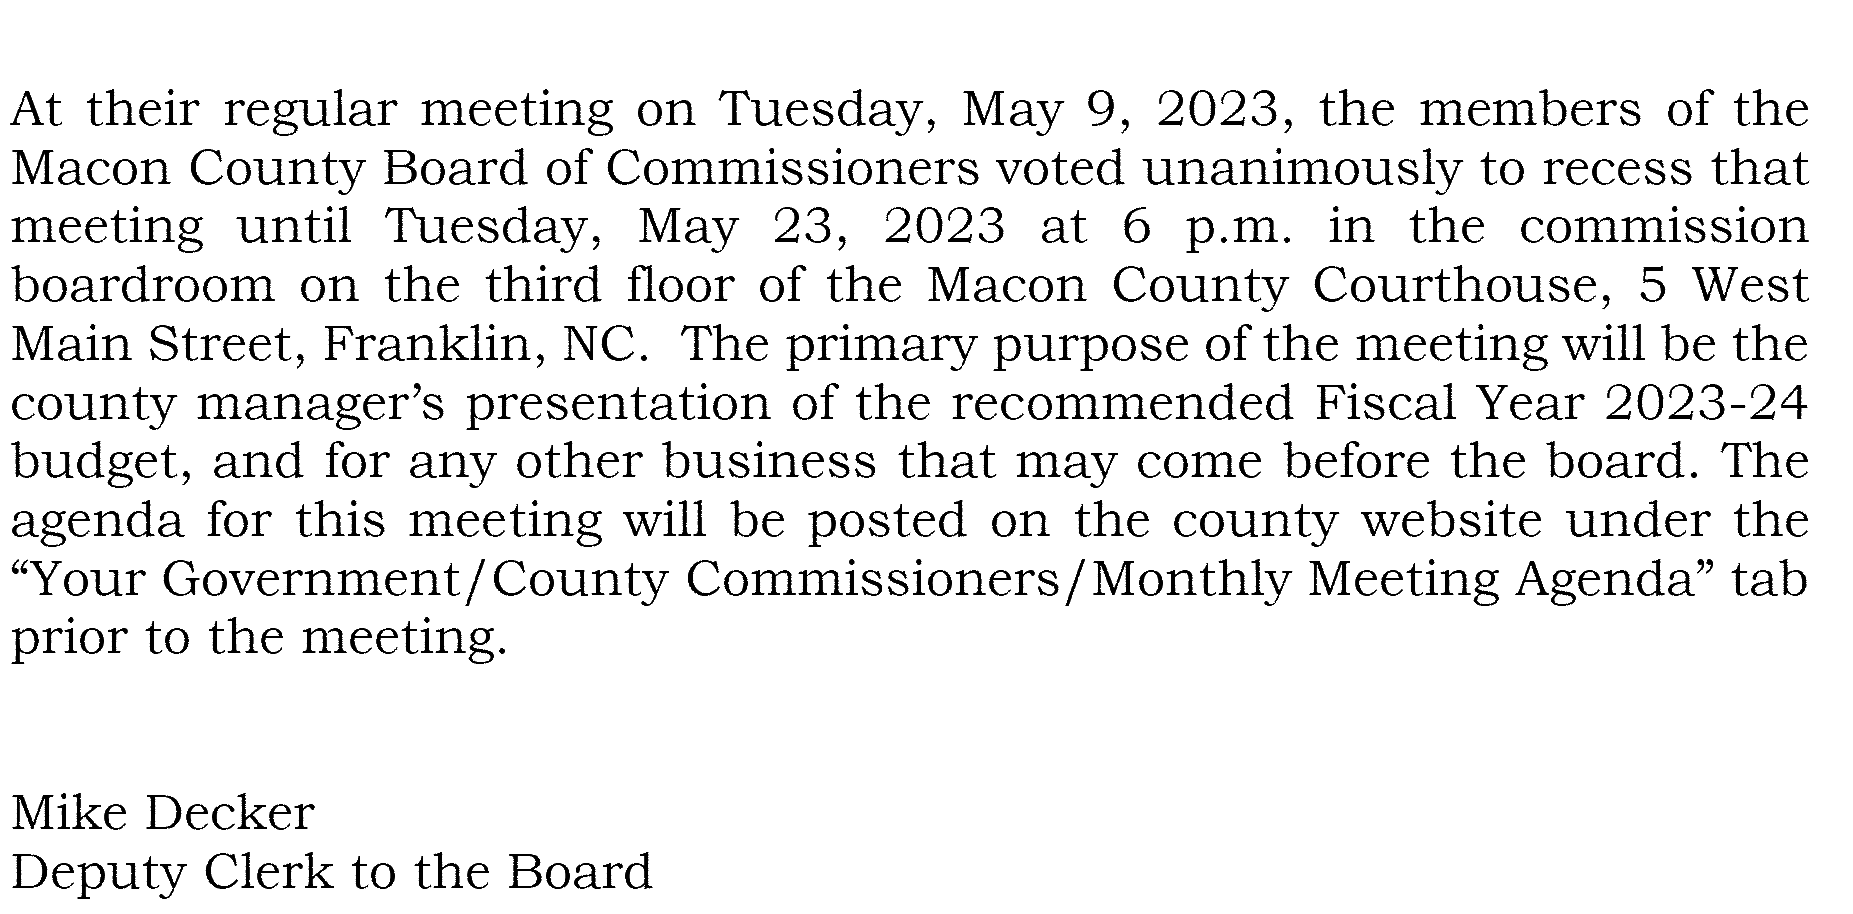 At their regular meeting on Tuesday, May 9, 2023, the members of the
Macon County Board of Commissioners voted unanimously to recess that
meeting until Tuesday, May 23, 2023 at 6 p.m. in the commission
boardroom on the third floor of the Macon County Courthouse, 5 West
Main Street, Franklin, NC.  The primary purpose of the meeting will be the
county manager’s presentation of the recommended Fiscal Year 2023-24
budget, and for any other business that may come before the board. The
agenda for this meeting will be posted on the county website under the
“Your Government/County Commissioners/Monthly Meeting Agenda” tab
prior to the meeting.
Mike Decker
Deputy Clerk to the Board